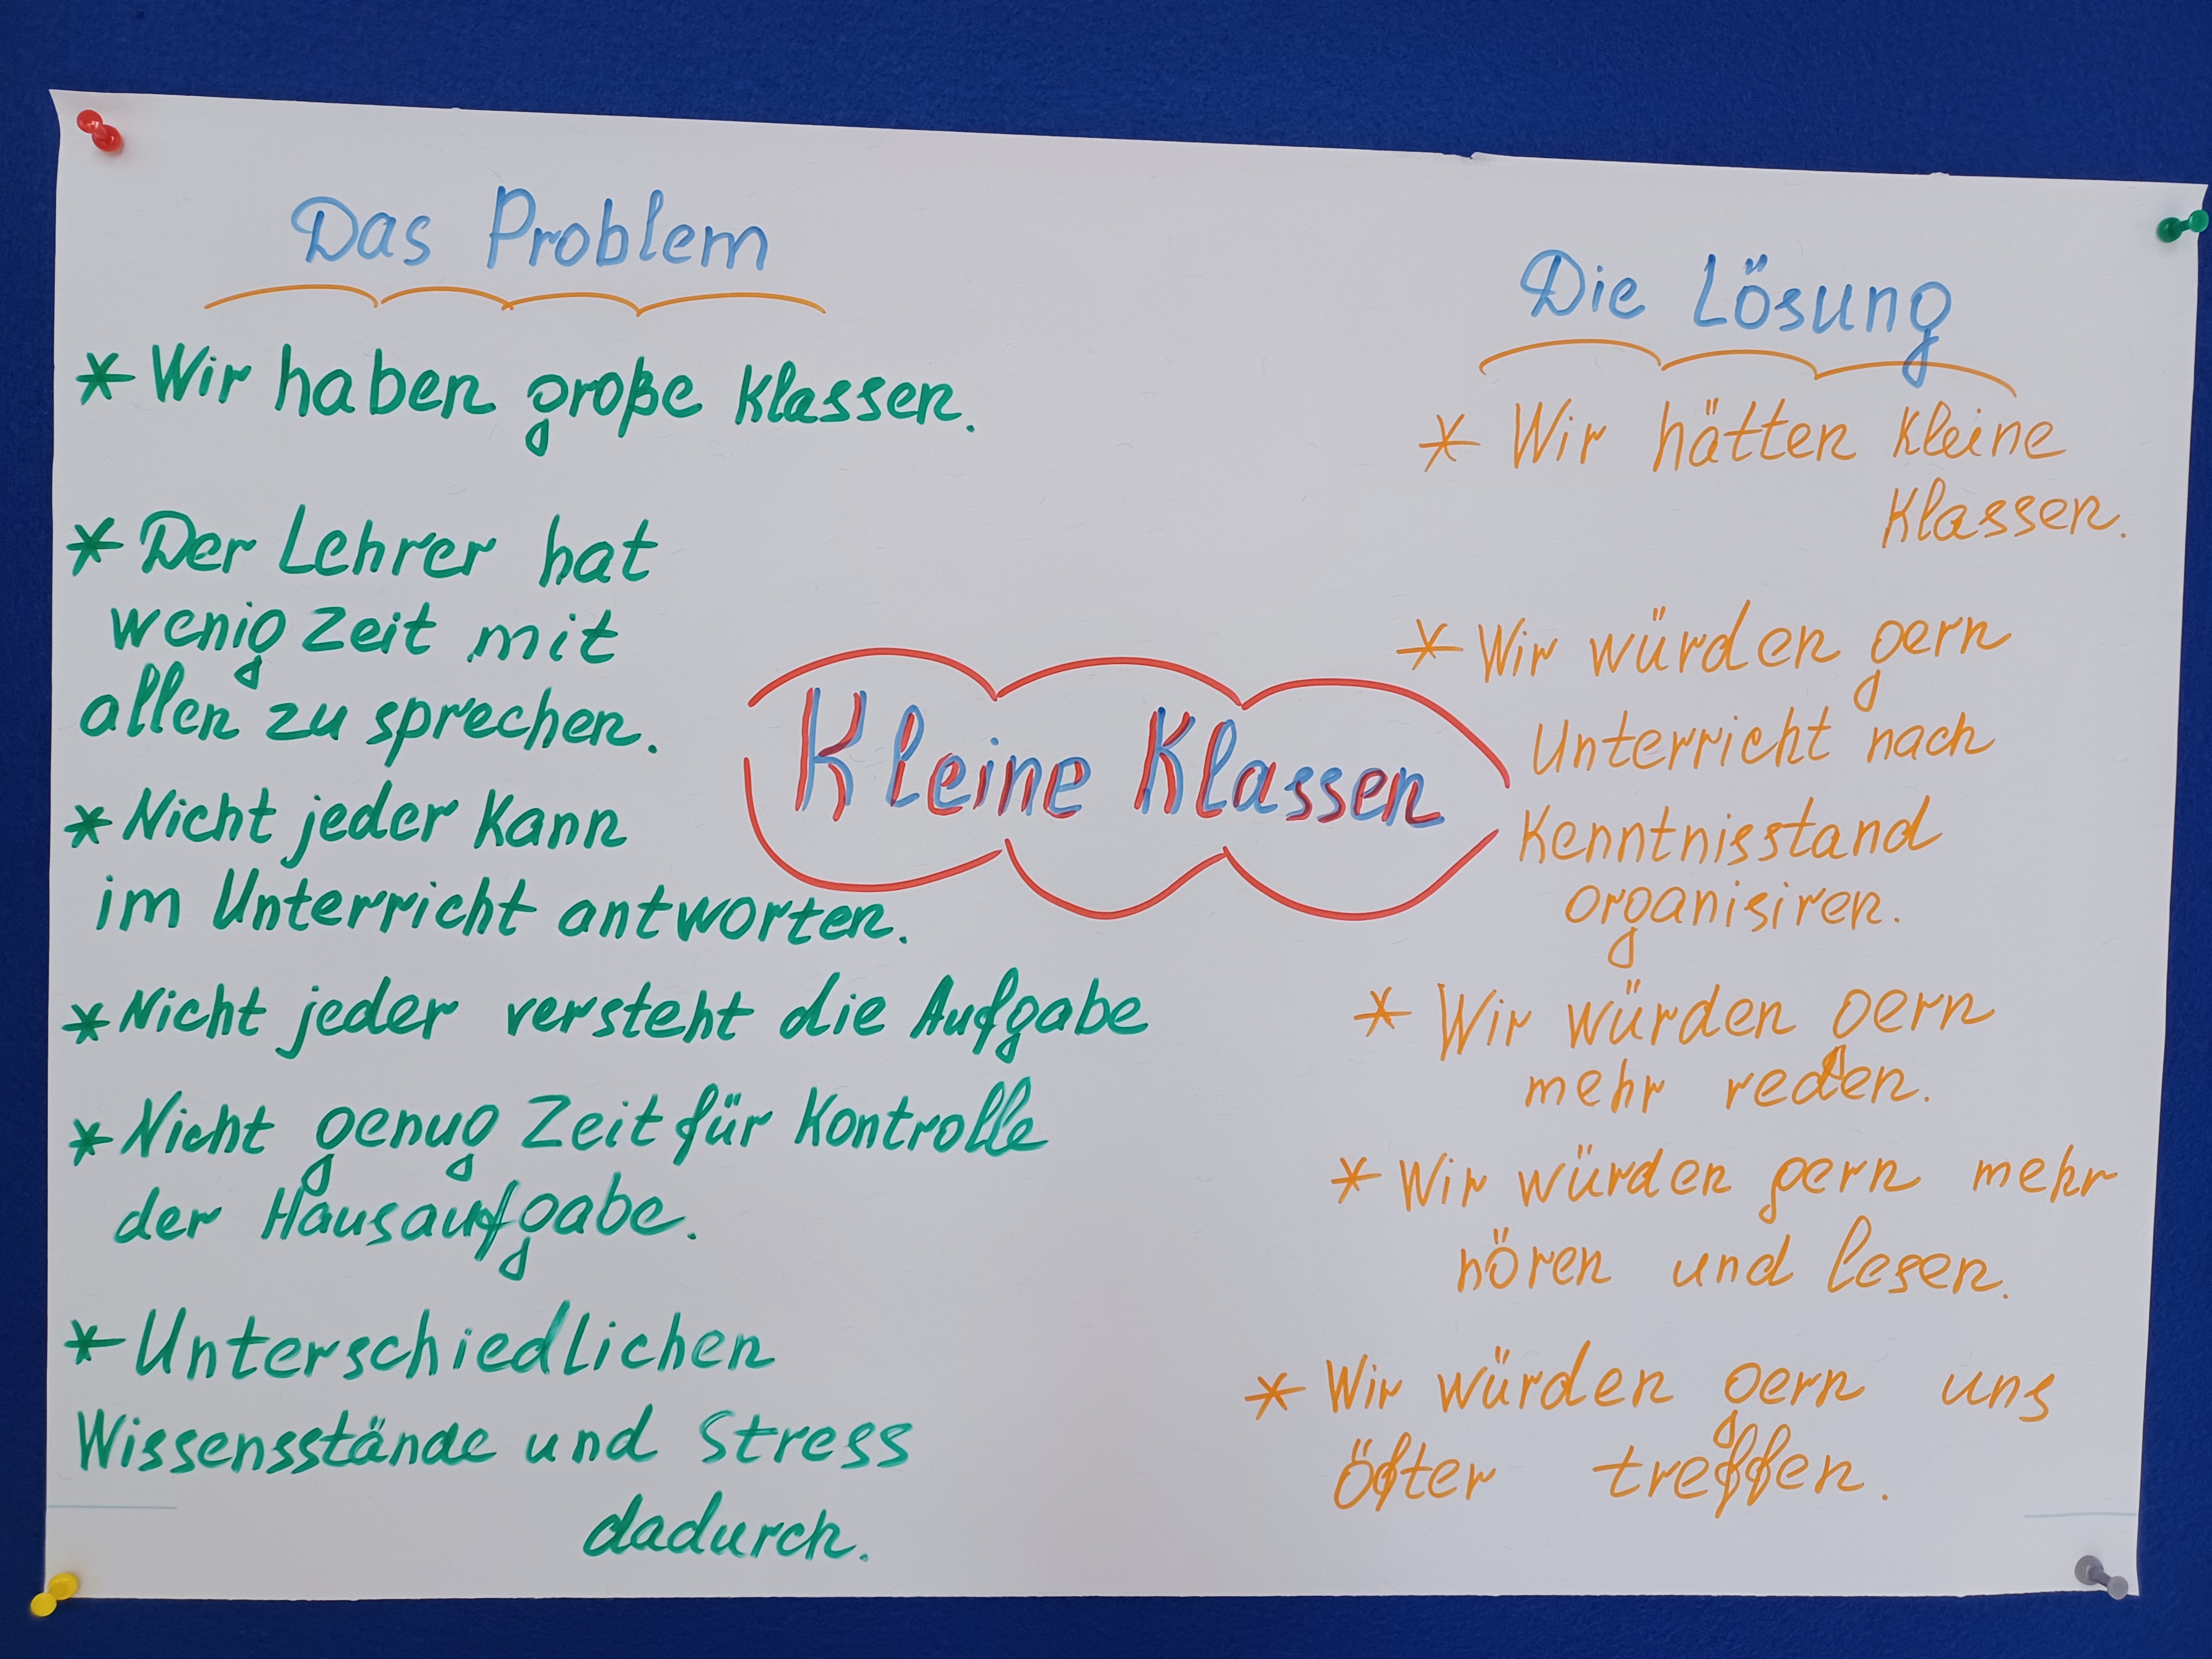 Das Problem
* Wir haben große Klassen.
* Der Lehrer hat
wenig Zeit mit
allen zu sprechen.
* Nicht jeder kann
im Unterricht antworten.
* Nicht jeder versteht die Aufgabe
* Nicht genug Zeit für Kontrolle
der Hausaufgabe.
* Unterschiedlichen
Wissensstände und Stress
dadurch.
Kleine Klassen
Die Lösung
* Wir hätten kleine
Klassen.
* Wir würden gern
Unterricht nach
Kenntnisstand
organisiren.
* Wir würden gern
mehr reden.
* Wir würden gern mehr
hören und lesen.
* Wir würden gern uns
öfter treffen.